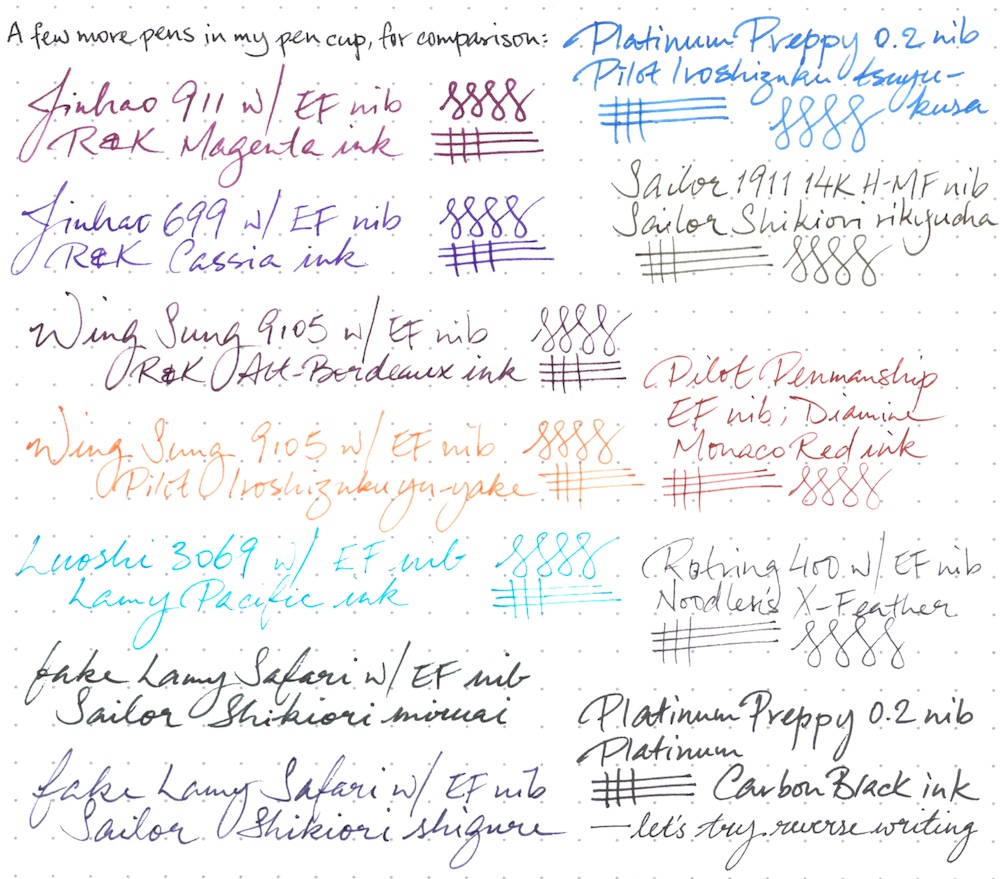 A few more pens in my pen cup, for comparison:
Jinhao 911 w/ EF nib
R&K Magenta ink
Jinhao 699 w/ EF nib
R&K Cassia ink
Wing Sung 9105 w/ EF nib
R&K Alt-Bordeaux ink
Wing Sung 9105 w/ EF nib
Pilot Iroshizuku yu-yake
Luoshi 3069 w/ EF nib
Lamy Pacific ink
fake Lamy Safari w/ EF nib
Sailor Shikiori miruai
fake Lamy Safari w/ EF nib
Sailor Shikiori shigure
Platinum Preppy 0.2 nib
Pilot Iroshizuku tsuyu-
kusa
Sailor 1911 14K H-MF nib
Sailor Shikiori rikyucha
Pilot Penmanship
EF nib; Diamine
Monaco Red ink
Rotring 400 w/ EF nib
Noodler's X-Feather
Platinum Preppy 0.2 nib
Platinum
Carbon Black ink
—let's try reverse writing